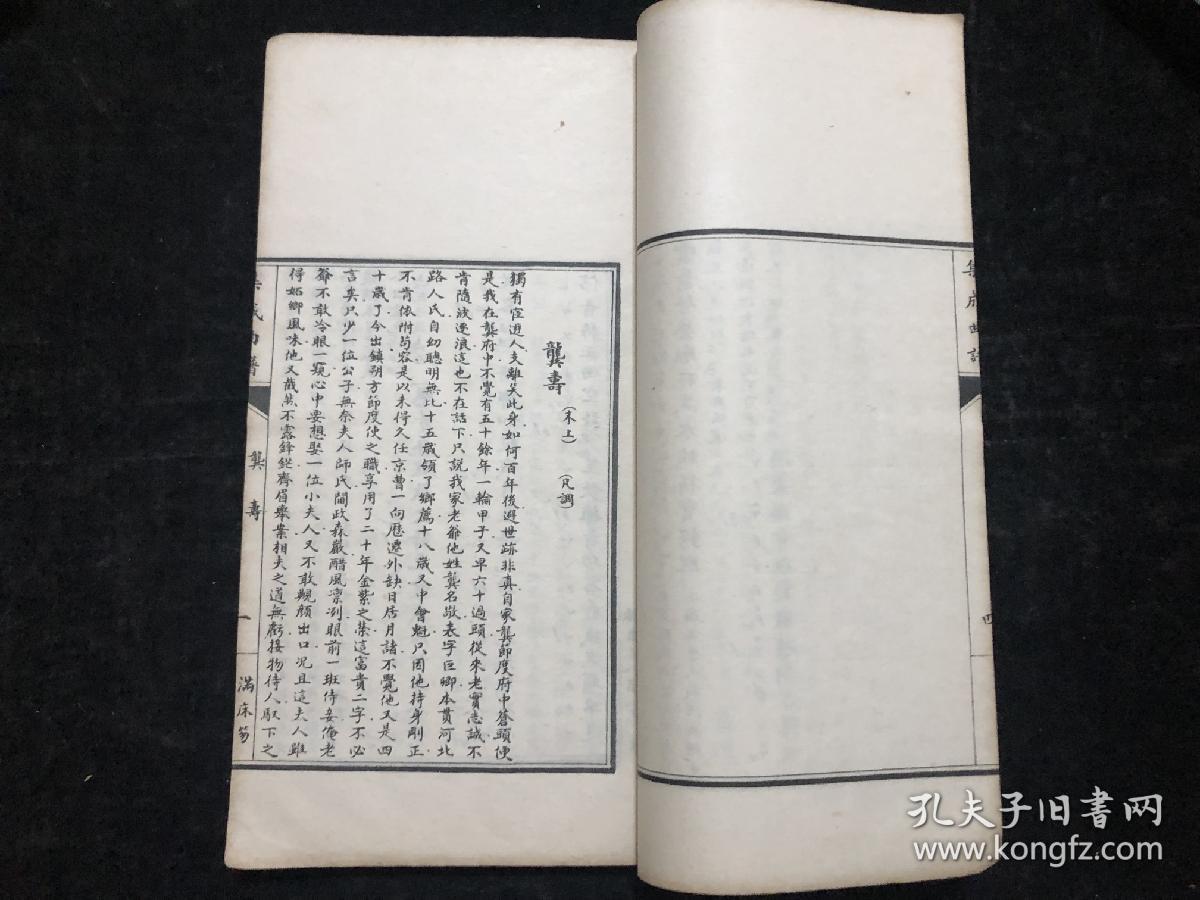 集成曲譜
四
龔壽
(末上)
(凡調)
獨有宦遊人支離笑此身如何百年後避世跡非真自家龔節度府中蒼頭便
是我在龔府中不覺有五十餘年一輪甲子又早六十過頭從來老實志誠不
肯隨波逐浪這也不在話下只說我家老爺他姓龔名敬表字巨卿本貫河北
路人氏自幼聰明無比十五歲領了鄉薦十八歲又中會魁只因他持身剛正
不肯依附苟容是以未得久任京曹一向歷遷外缺日居月諸不覺他又是四
十歲了今出鎮朔方節度使之職享用了二十年金紫之榮這富貴二字不必
言矣只少一位公子無奈夫人師氏閫政森嚴醋風凛冽眼前一班侍妾俺老
爺不敢冷眼一覷心中要想娶一位小夫人又不敢覥顏出口况且這夫人雖
得妬鄉風味他又藏蒸不露鋒鋩齊眉舉案相夫之道無虧接物待人馭下之
集成曲譜
龔壽
一
滿床笏
孔夫子旧书网
www.kongfz.com